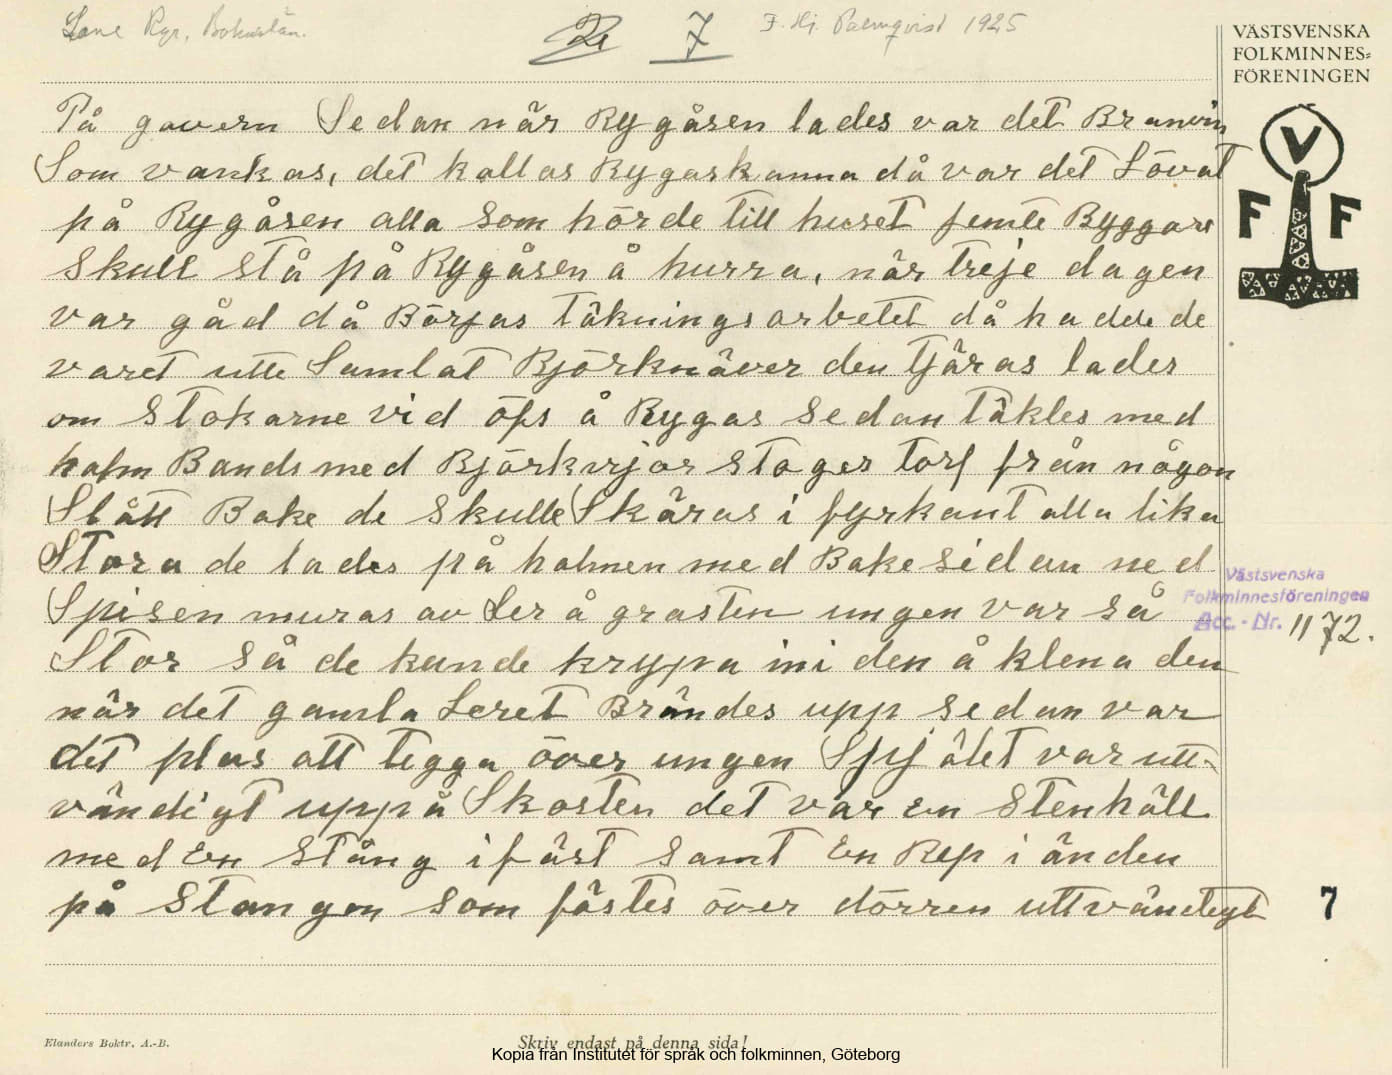 Lane Hgr, Bohuslän.
7
F. Hj. Palmqvist 1925
VÄSTSVENSKA
FOLKMINNES-
FÖRENINGEN
V
F F
På gavern Sedan när Rygåsen lades var det Branvin
Som vankas, det kallas Rygaskanna då var det Lövat
på Rygåsen alla som hörde till huset jemte Byggare
Skull stå på Rygåsen å hurra, når treje dagen
var gåd då Börjas täkningsarbetet då hadde de
varet utte Samlat Björknäver den tjäras lades
om Stokarne vid öfs å Rygas Sedan täkles med
halm Bands med Björkvijor Stoger torf från någon
Slått Bake de Skulle Skäras i fyrkant alla lika
Stora de lades på halmen med Bakesidan ned
Spisen muras av Ler å grasten ungen var så
Stor så de kunde krypa ini den å klena den
när det gamla Leret Brändes upp sedan var
det plas att legga över ungen Spjälet var utt-
vändigt uppå Skosten det var En Stenhäll
med En Stång i fäst samt En Rep i änden
på Stangen som fästes över dörren uttvändigt
Västsvenska
Folkminnesföreningen
Acc. - Nr. 1172.
7
Elanders Boktr. A.-B.
Skriv endast på denna sida!
Kopia från Institutet för språk och folkminnen, Göteborg